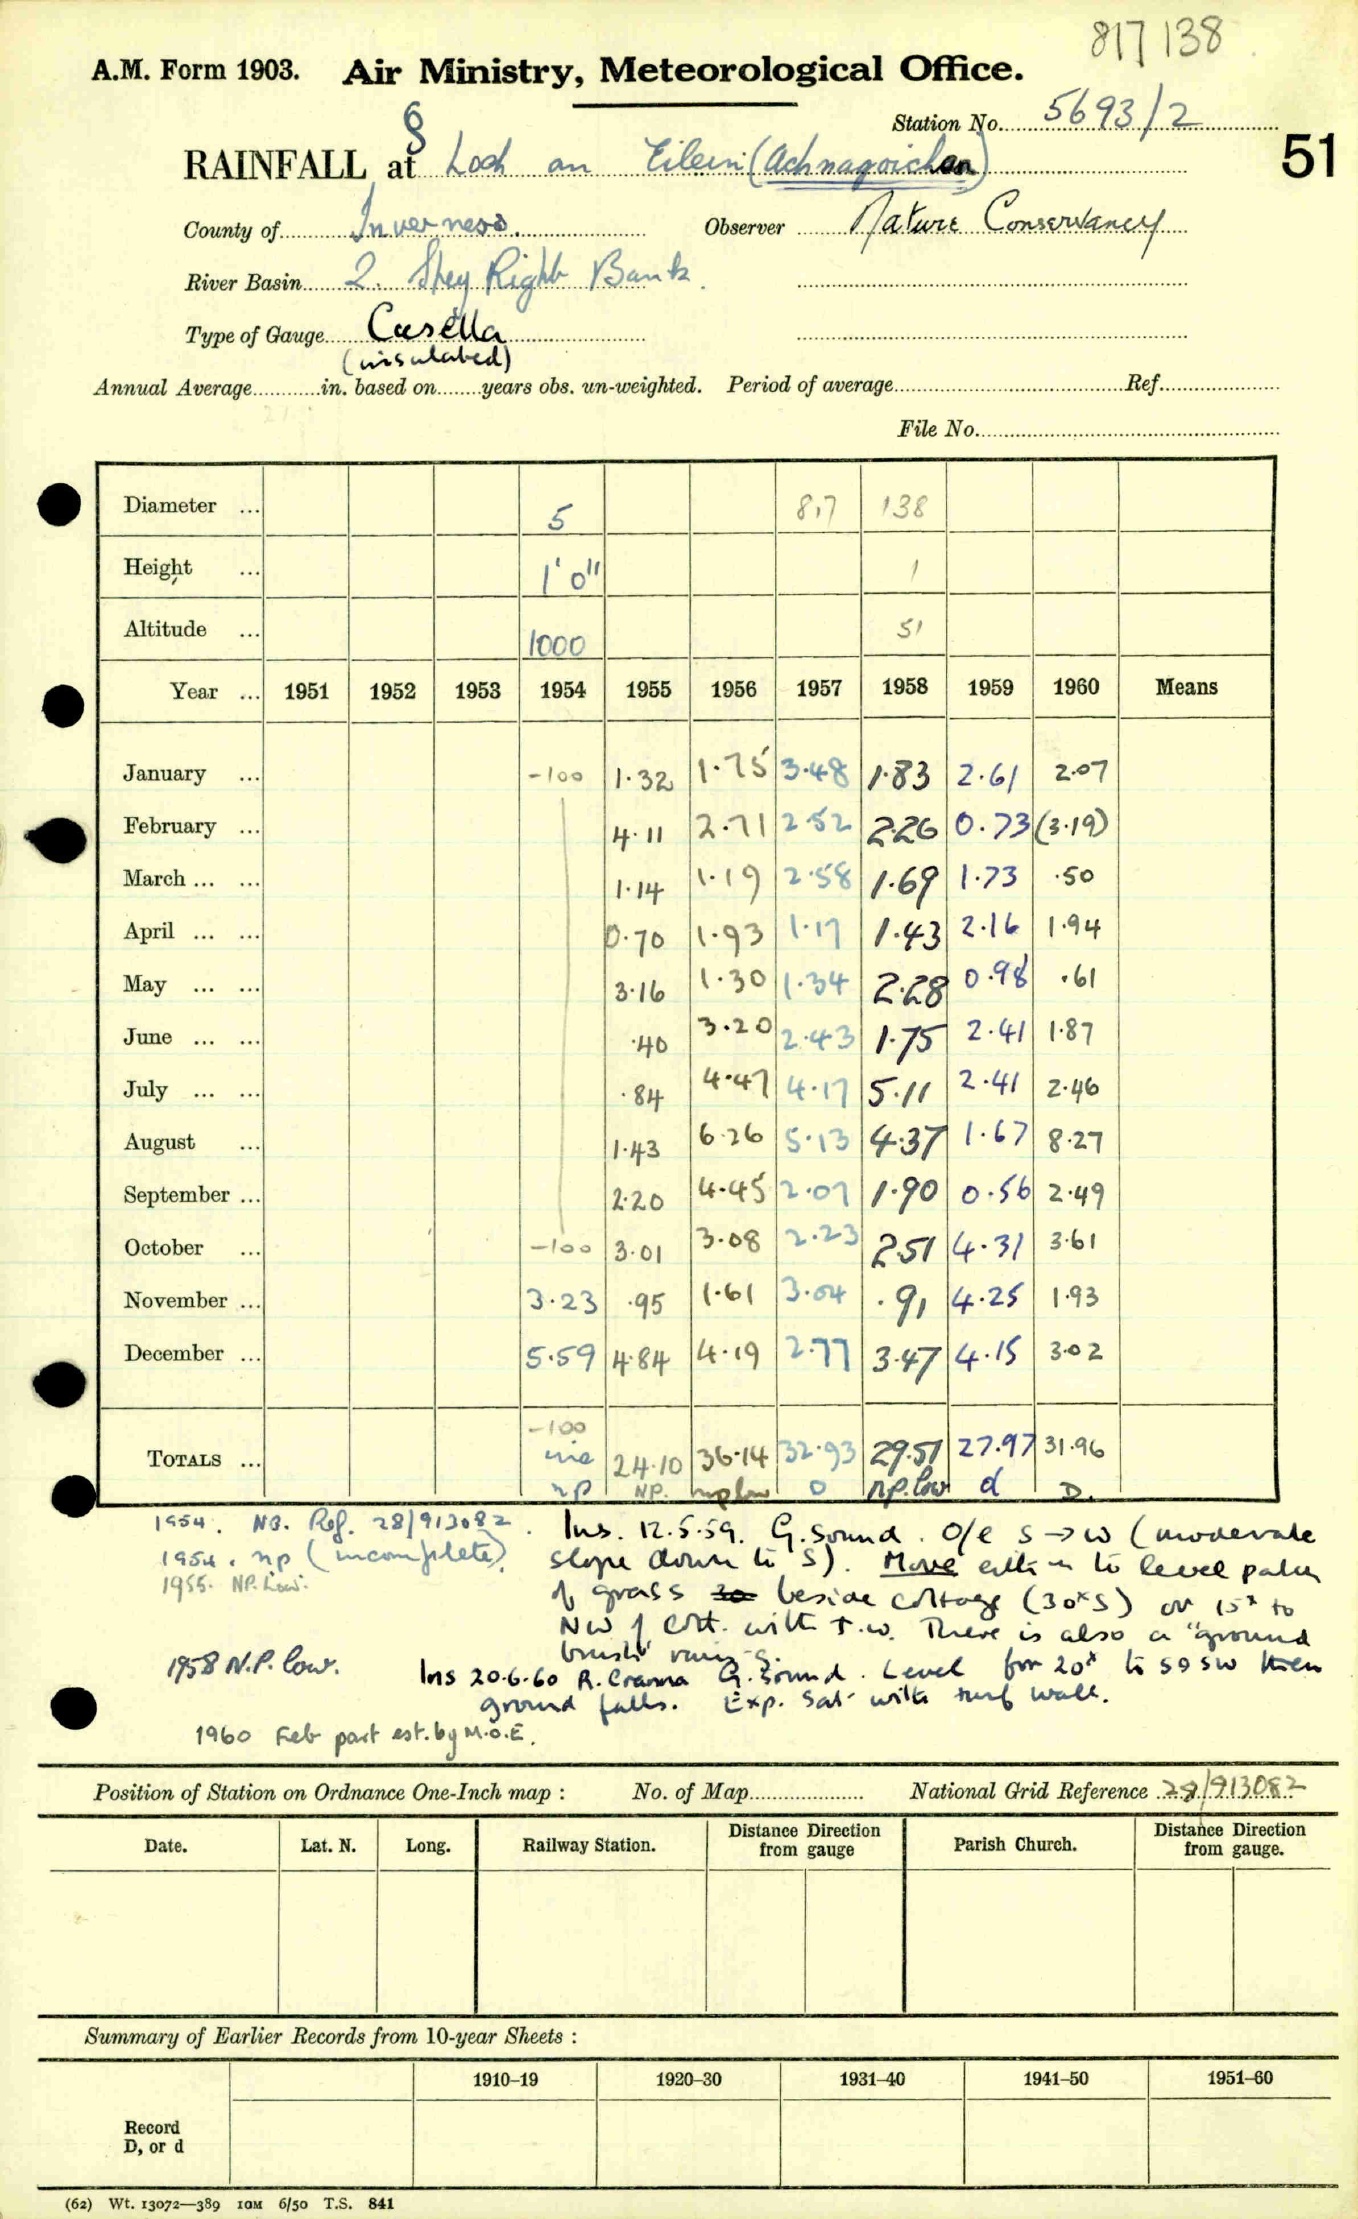 817/138
A.M. Form 1903. Air Ministry, Meteorological Office.
Station No. 5693/2
51
§
RAINFALL at Loch an Eilein (Achnagoichan)
County of Inverness. Observer Nature Conservancy
River Basin 2. Spey Right Bank.
Type of Gauge Casella
(insulated)
Annual Average in. based on years obs. un-weighted. Period of average Ref.
File No.
Diameter ... 5 817 138
Height ... 1' 0" 1
Altitude ... 1000 51
Year ... 1951 1952 1953 1954 1955 1956 1957 1958 1959 1960 Means
January ... -100 1.32 1.75 3.48 1.83 2.61 2.07
February ... 4.11 2.71 2.52 2.26 0.73 (3.19)
March ... ... 1.14 1.19 2.58 1.69 1.73 .50
April ... ... 0.70 1.93 1.17 1.43 2.16 1.94
May ... ... 3.16 1.30 1.34 2.28 0.98 .61
June ... ... .40 3.20 2.43 1.75 2.41 1.87
July ... ... .84 4.47 4.17 5.11 2.41 2.46
August ... 1.43 6.26 5.13 4.37 1.67 8.27
September ... 2.20 4.45 2.07 1.90 0.56 2.49
October ... -100 3.01 3.08 2.23 2.51 4.31 3.61
November ... 3.23 .95 1.61 3.04 .91 4.25 1.93
December ... 5.59 4.84 4.19 2.77 3.47 4.15 3.02
-100
TOTALS ... inc 24.10 36.14 32.93 29.51 27.97 31.96
np NP. np low D NP. low d D.
1954. NG. Ref. 28/913082. Ins. 12.5.59. G. sound. O/e S→W (moderate
1954. np (incomplete). slope down to S). Move either to level patch
1955. NP. Low. of grass beside cottage (30x S) or 15x to
NW of cott. with t.w. There is also a "ground
1958 N.P. low. Ins 20.6.60 R. Cranna G. sound. Level for 20x to SSW then
ground falls. Exp. Sat. with turf wall.
1960 Feb part est. by M.O.E.
Position of Station on Ordnance One-Inch map : No. of Map National Grid Reference 28/913082
Date. Lat. N. Long. Railway Station. Distance Direction from gauge Parish Church. Distance Direction from gauge.
Summary of Earlier Records from 10-year Sheets :
1910–19 1920–30 1931–40 1941–50 1951–60
Record
D, or d
(62) Wt. 13072—389 10M 6/50 T.S. 841